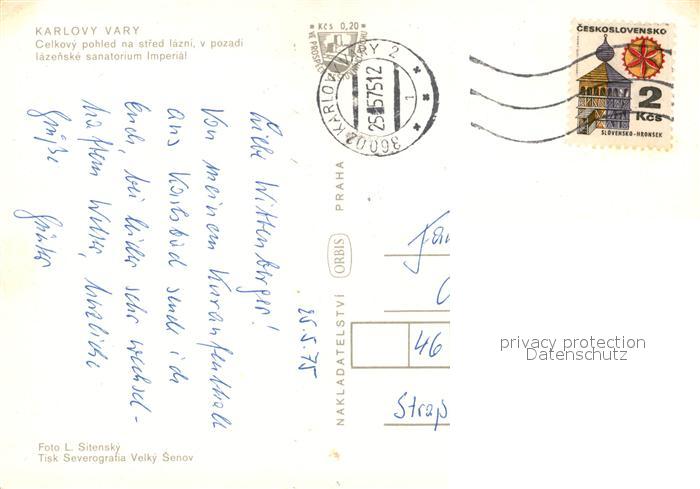 KARLOVY VARY
Celkový pohled na střed lázní, v pozadí
lázeňské sanatorium Imperiál
Kčs 0,20
360 02 KARLOVY VARY 2
25.5.75 12
1
ČESKOSLOVENSKO
2
Kčs
SLOVENSKO-HRONSEK
26.5.75
Liebe Wittenberger!
Von meinem Kuraufenthalt
aus Karlsbad sende ich
Euch, bei leider sehr wechsel-
haftem Wetter, herzliche
Grüße
Günter
NAKLADATELSTVÍ ORBIS PRAHA
46
Strap
privacy protection
Datenschutz
Foto L. Sitenský
Tisk Severografia Velký Šenov